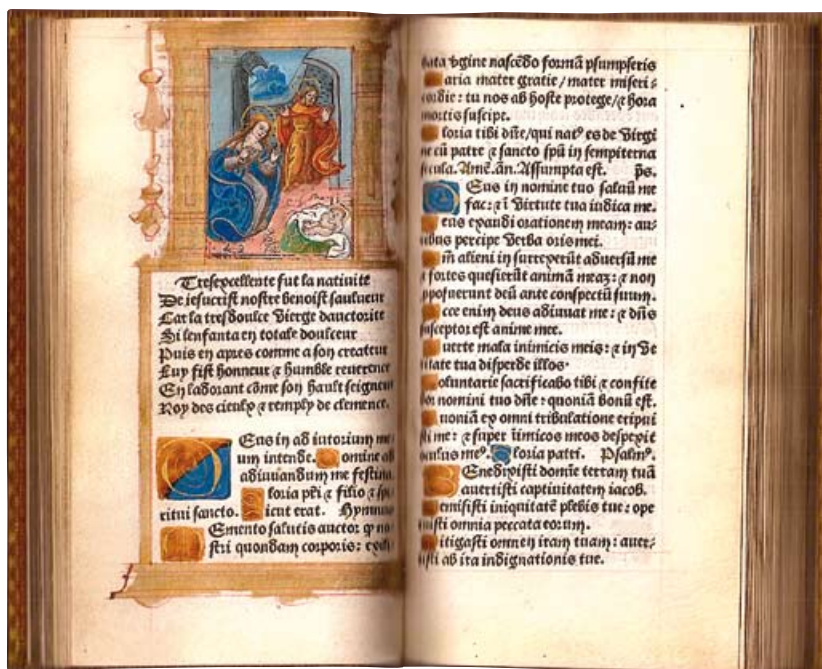 Tresexcellente fut la nativite
De iesucrist nostre benoist sauueur
Car la tresdoulce vierge dauctorite
Si lenfanta en totale doulceur
Puis en apres comme a son createur
Luy fist honneur & humble reuerence
En ladorant cõme son hault seigneur
Roy des cieulx & remply de clemence.
DEus in adiutorium me
um intende. Domine ad
adiuuandum me festina.
Gloria pr̃i & filio & spi
ritui sancto. Sicut erat. Hymnus
MEmento salutis auctor qͥ no
stri quondam corporis: ex
bata vgine nascẽdo formã psumpseris
Maria mater gratie/mater miseri-
cordie: tu nos ab hoste protege/& hora
mortis suscipe.
Gloria tibi dñe/qui natꝰ es de virgi
ne cũ patre & sancto spũ in sempiterna
secula. Amẽ. añ. Assumpta est. ps.
DEus in nomine tuo saluũ me
fac: & ĩ virtute tua iudica me.
Deus exaudi orationem meam: au-
ribus percipe verba oris mei.
Qm̃ alieni insurrexerũt aduersũ me
& fortes quesierũt animã meaꝫ: & non
pposuerunt deũ ante conspectũ suum.
Ecce enim deus adiuuat me: & dñs
susceptor est anime mee.
Auerte mala inimicis meis: & in ve
ritate tua disperde illos.
Voluntarie sacrificabo tibi & confite
bor nomini tuo dñe: quoniã bonũ est.
Quoniã ex omni tribulatione eripui
sti me: & super ĩimicos meos despexit
oculus meꝰ. Gloria patri. Psalmꝰ.
BEnedixisti domĩe terram tuã
auertisti captiuitatem iacob.
Remisisti iniquitatẽ plebis tue: ope
ruisti omnia peccata eorum.
Mitigasti omnem iram tuam: auer-
tisti ab ira indignationis tue.